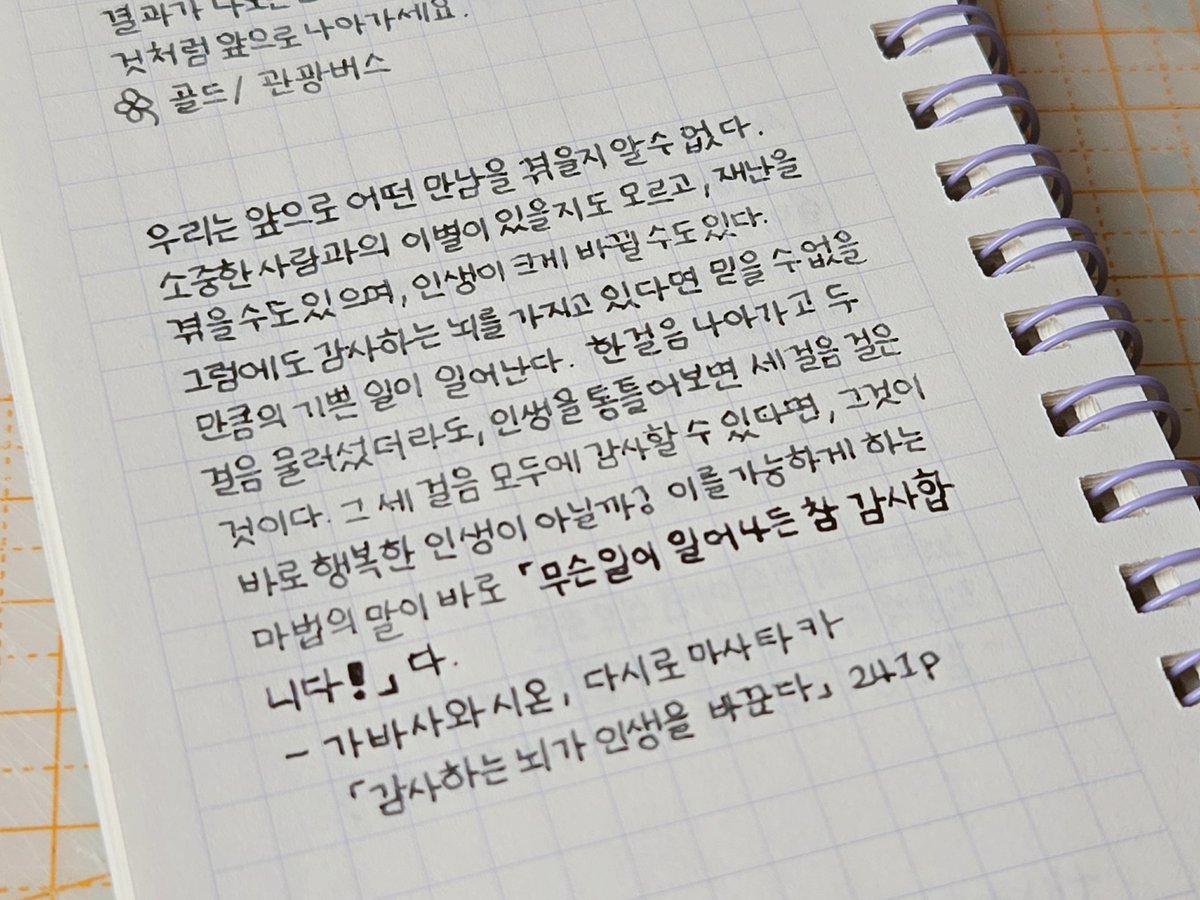 결과가 나오는
것처럼 앞으로 나아가세요.
골드/ 관광버스
우리는 앞으로 어떤 만남을 겪을지 알 수 없다.
소중한 사람과의 이별이 있을지도 모르고, 재난을
겪을 수도 있으며, 인생이 크게 바뀔 수도 있다.
그럼에도 감사하는 뇌를 가지고 있다면 믿을 수 없을
만큼의 기쁜 일이 일어난다. 한 걸음 나아가고 두
걸음 물러섰더라도, 인생을 통틀어보면 세 걸음 걸은
것이다. 그 세 걸음 모두에 감사할 수 있다면, 그것이
바로 행복한 인생이 아닐까? 이를 가능하게 하는
마법의 말이 바로 「무슨일이 일어나든 참 감사합
니다!」다.
- 가바사와 시온, 다시로 마사타카
「감사하는 뇌가 인생을 바꾼다」 241p